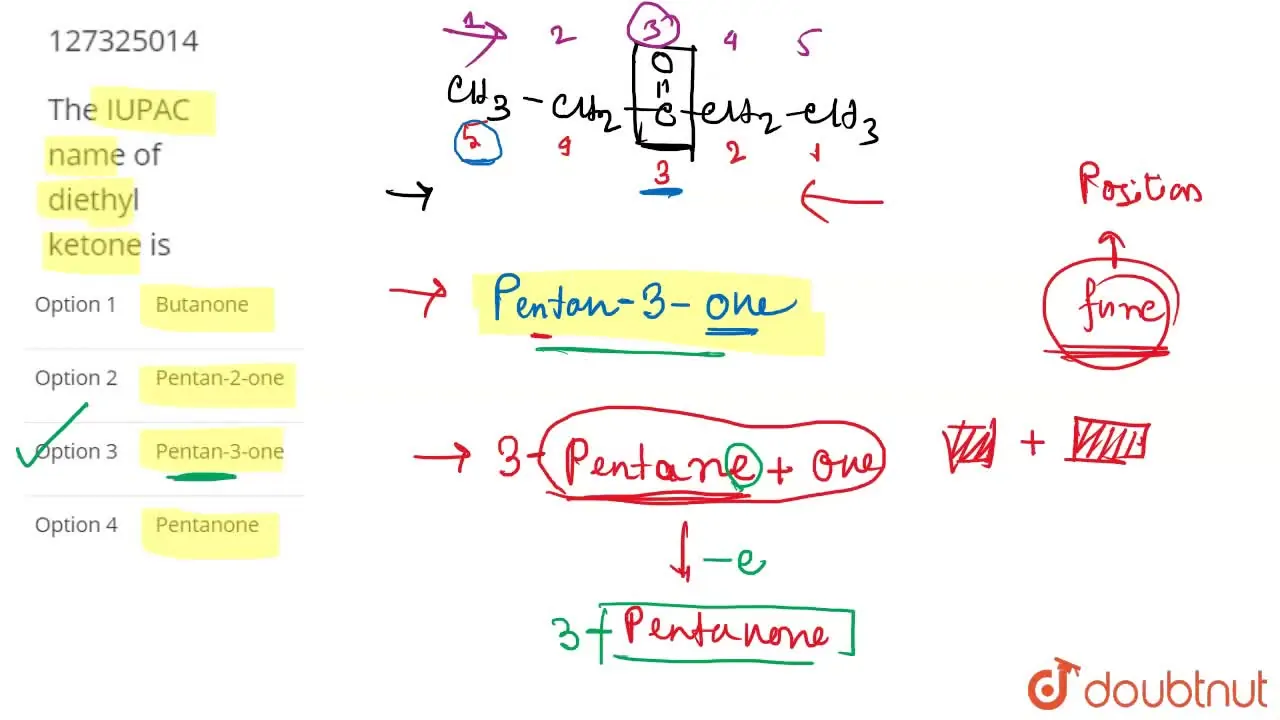 127325014
The IUPAC
name of
diethyl
ketone is
Option 1 Butanone
Option 2 Pentan-2-one
Option 3 Pentan-3-one
Option 4 Pentanone
1 2 3 4 5
O
CH3 - CH2 - C - CH2 - CH3
5 4 3 2 1
Pentan-3-one
3- Pentane + one
-e
3- Pentanone
Position
func
+
doubtnut